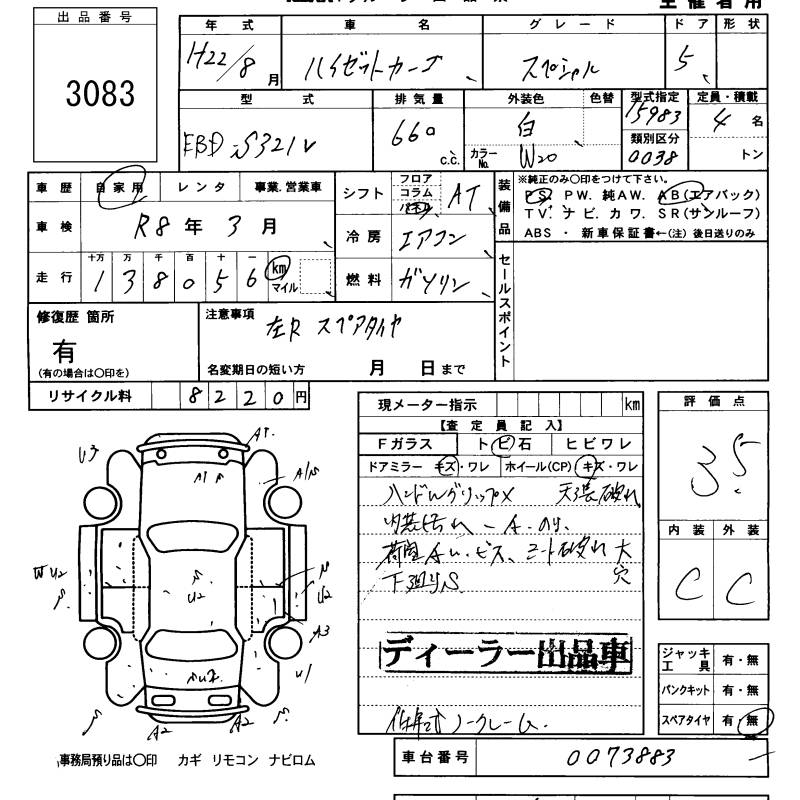 出品番号
3083
主催者用
年式 車名 グレード ドア 形状
H22/8月 ハイゼットカーゴ スペシャル 5
型式 排気量 外装色 色替 型式指定 定員・積載
EBD-S321V 660 c.c. 白 15983 4名
カラーNo. W20 類別区分 0038 トン
車歴 自家用 レンタ 事業.営業車
車検 R8年3月
走行 十万 万 千 百 十 一
138056 km マイル
シフト フロア コラム パネル AT
冷房 エアコン
燃料 ガソリン
装備品
※純正のみ○印をつけて下さい。
PS. PW. 純AW. AB(エアバック)
TV. ナビ. カワ. SR(サンルーフ)
ABS ・ 新車保証書←(注) 後日送りのみ
セールスポイント
修復歴 箇所
有
(有の場合は○印を)
注意事項 左R スペアタイヤ
名変期日の短い方 月 日まで
リサイクル料 8220円
現メーター指示 km
【査定員記入】
Fガラス トビ石 ヒビワレ
ドアミラー キズ・ワレ ホイール(CP) キズ・ワレ
ハンドルグリップ× 天張破れ
内装汚れ
下廻りS
ディーラー出品車
ノークレーム.
評価点
3.5
内装 外装
C C
ジャッキ工具 有・無
パンクキット 有・無
スペアタイヤ 有・無
車台番号 0073883
U3
A1
A1
W U2
U2
U2
A3
U1
A2
A2
事務局預り品は○印 カギ リモコン ナビロム